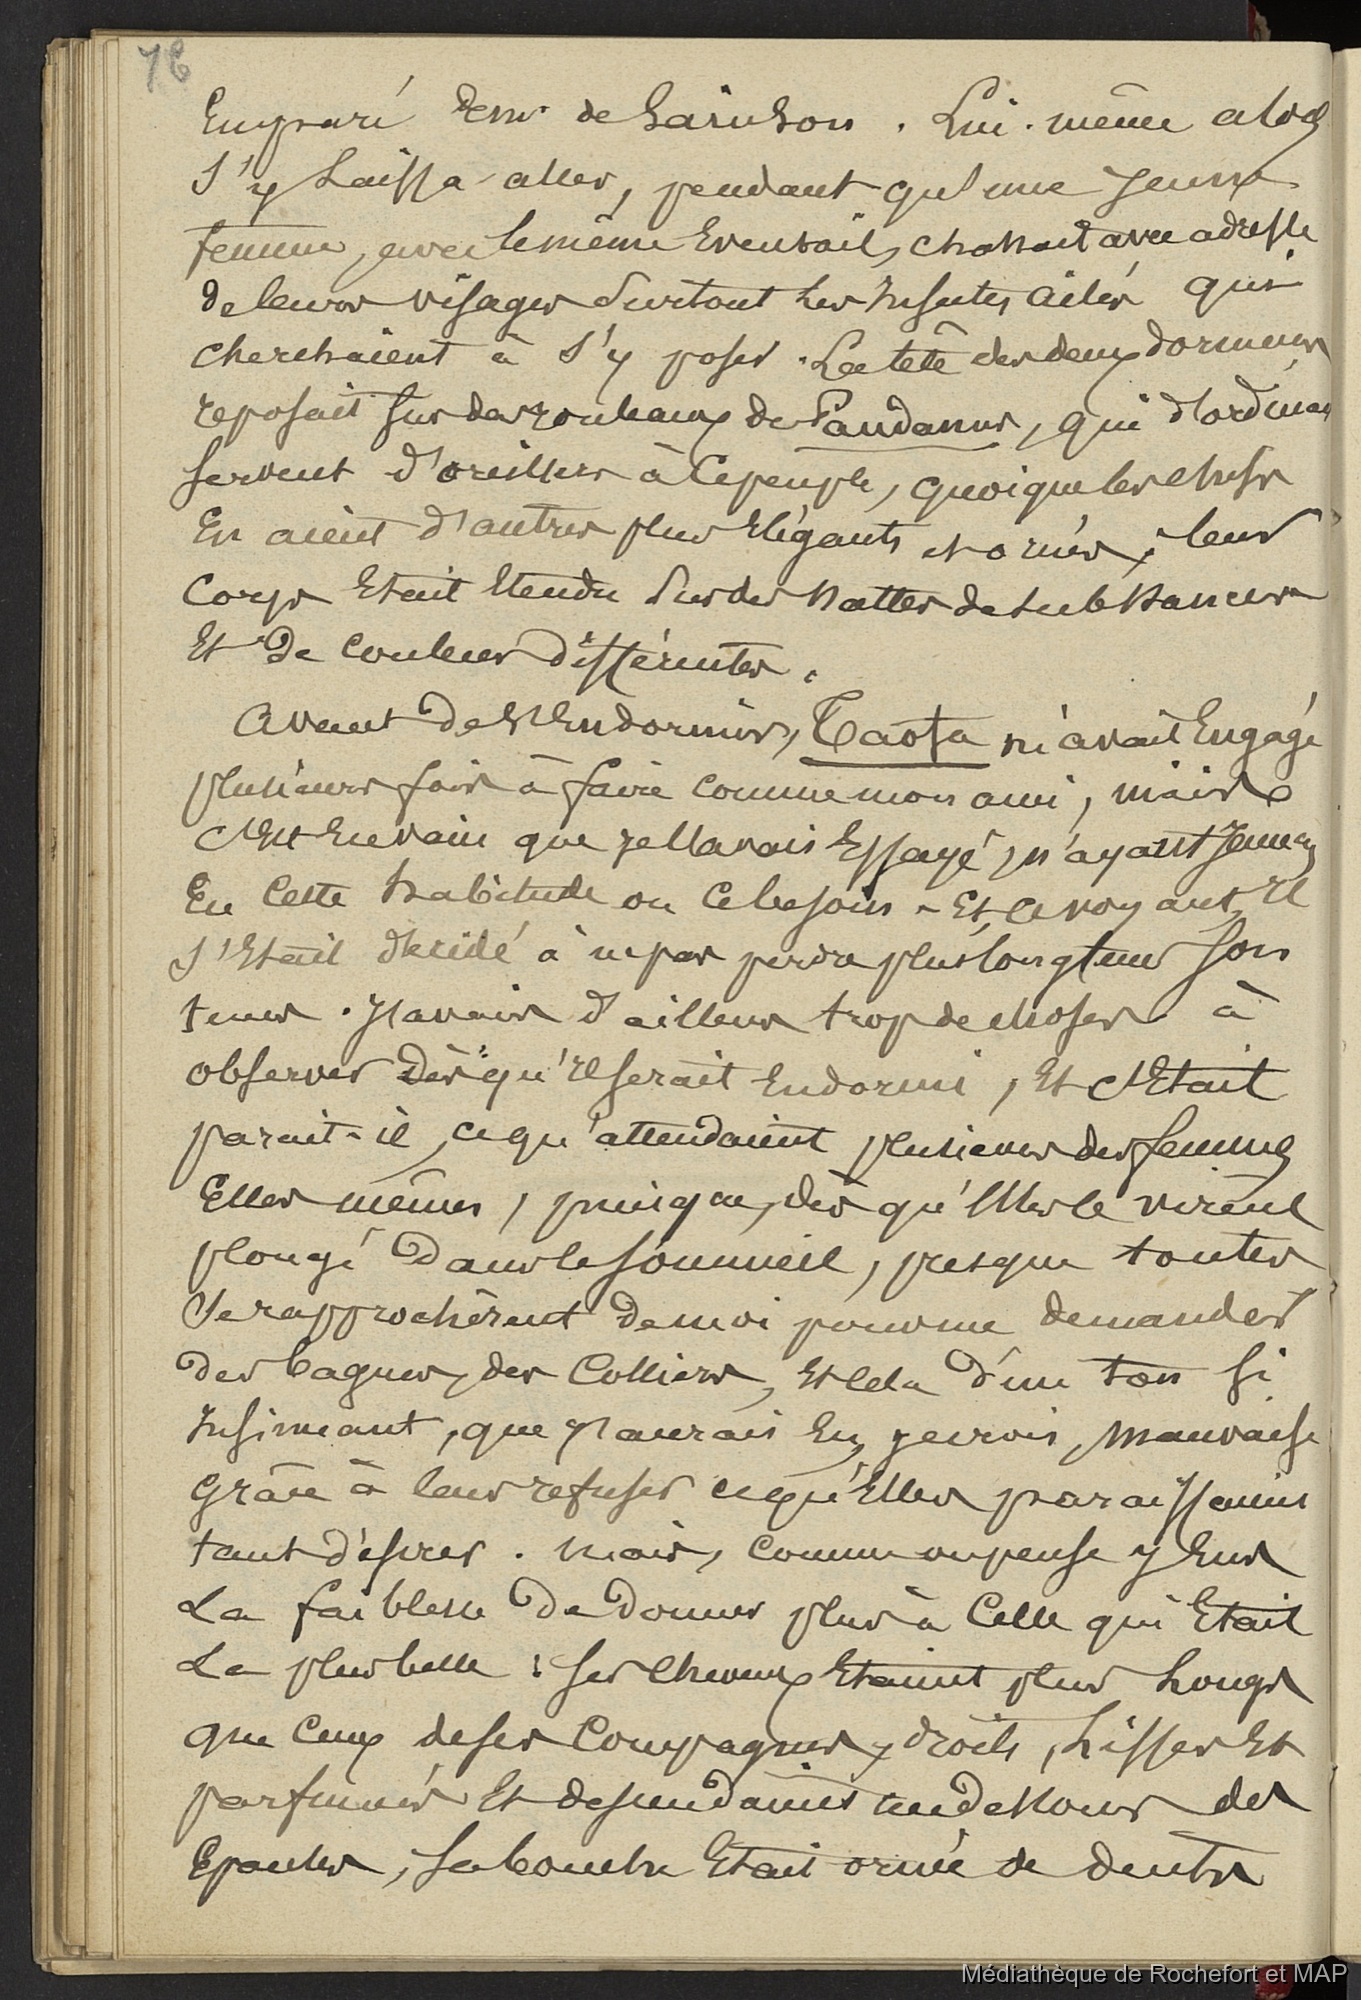 76
Emparé de Mr. de Sainson. Lui-même alors
s'y Laissa aller, pendant qu'une jeune
femme, avec le même Eventail, chassait avec adresse
de leurs visages surtout les Insectes ailés qui
cherchaient à s'y poser. La tête des deux dormeurs
reposait sur des rouleaux de Pandanus, qui d'ordinai
servent d'oreillers à Ce peuple, quoique les chefs
En aient d'autres plus Elégants et ornés; leur
Corps Etait Etendu Sur des Nattes de substances
Et de Couleurs différentes.
Avant de s'Endormir, Taofa m'avait Engagé
plusieurs fois à faire comme mon ami, mais
C'est En vain que je l'avais Essayé, n'ayant jamais
Eu Cette habitude ou Ce besoin. Et, le voyant, Il
s'Etait décidé à ne pas perdre plus longtems son
tems. J'avais d'ailleurs trop de choses à
observer dès qu'Il serait Endormi, Et c'Etait
parait-il, ce qu'attendaient plusieurs des femmes
Elles mêmes, puisque, dès qu'Elles le virent
plongé Dans le sommeil, presque toutes
Se rapprochèrent de moi pour me demander
des bagues, des Colliers, Et Cela d'un ton si
Insinuant, que j'aurais Eu, je crois, mauvaise
grâce à leur refuser ce qu'Elles paraissaient
tant désirer. Mais, comme on pense j'Eus
La faiblesse De Donner plus à Celle qui Etait
La plus belle: ses Cheveux Etaient plus Longs
que Ceux de ses Compagnes, droits, Lisses Et
parfumés Et descendaient au dessous des
Epaules, sa bouche Etait ornée de dents
Médiathèque de Rochefort et MAP